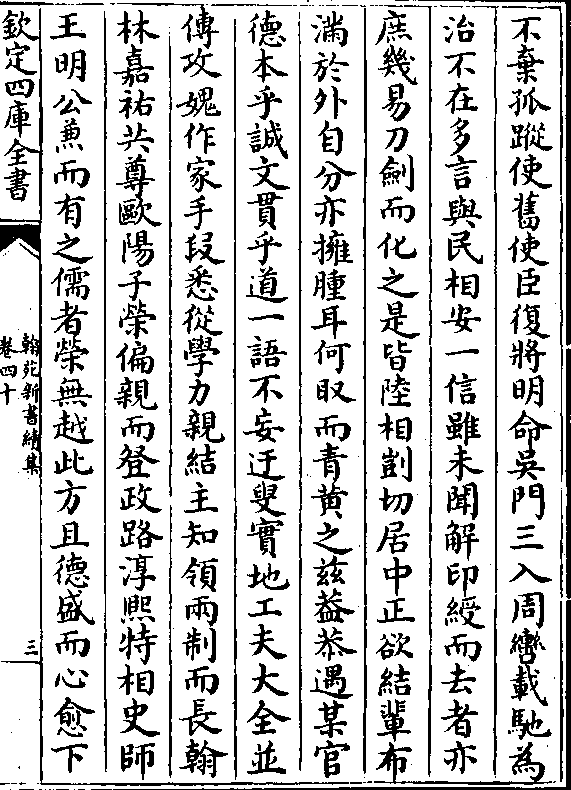 不棄孤蹤使舊使臣復將明命吳門三入周轡載馳為
治不在多言與民相安一信雖未聞解印綬而去者亦
庶幾易刀劍而化之是皆陸相剴切居中正欲結輩布
滿於外自分亦擁腫耳何取而青黃之兹葢恭遇某官
德本乎誠文貫乎道一語不妄迂叟實地工夫大全並
傳攻媿作家手段悉從學力親結主知領兩制而長翰
林嘉祐共尊歐陽子榮偏親而登政路淳熙特相史師
王明公兼而有之儒者榮無越此方且德盛而心愈下
欽定四庫全書
翰苑新書續集
卷四十
三